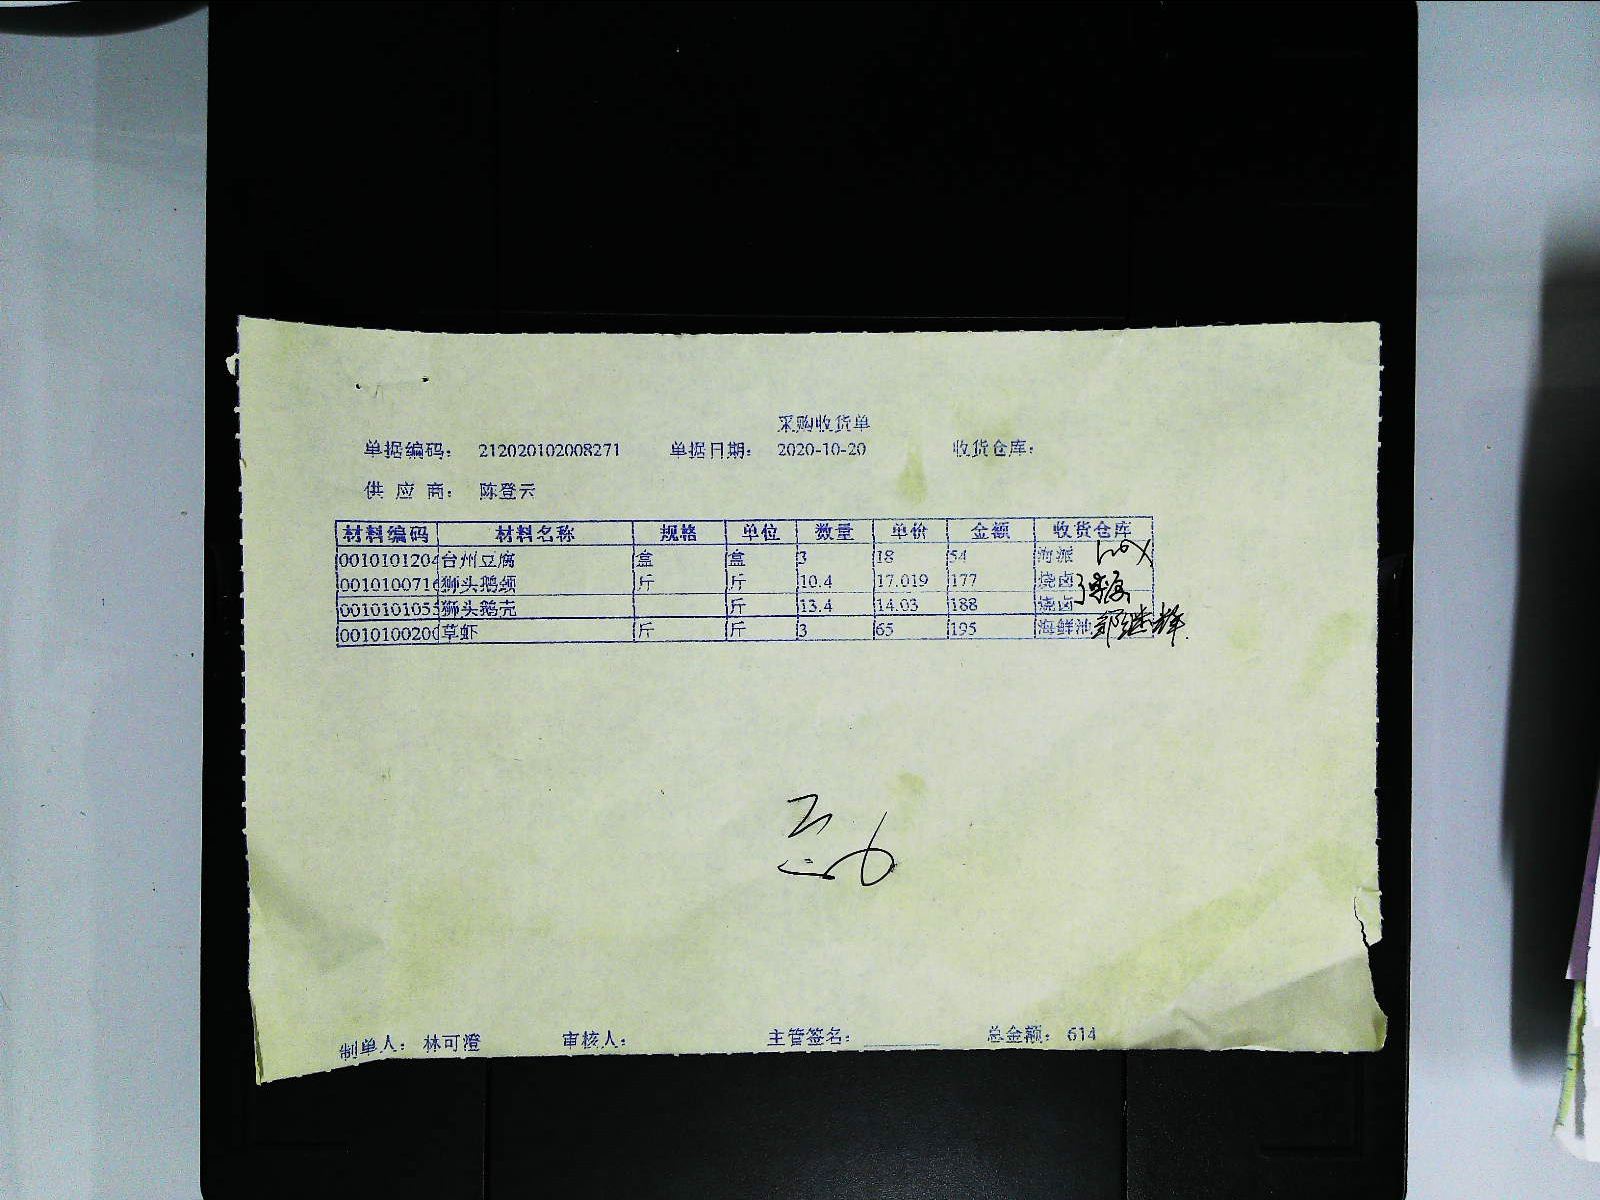 采购收货单
单据编码： 212020102008271 单据日期： 2020-10-20 收货仓库：
供 应 商： 陈登云
材料编码 材料名称 规格 单位 数量 单价 金额 收货仓库
0010101204 台州豆腐 盒 盒 3 18 54 海派
0010100716 狮头鹅颈 斤 斤 10.4 17.019 177 烧卤
0010101055 狮头鹅壳 斤 13.4 14.03 188 烧卤
0010100200 草虾 斤 斤 3 65 195 海鲜池
制单人： 林可澄 审核人： 主管签名： 总金额： 614